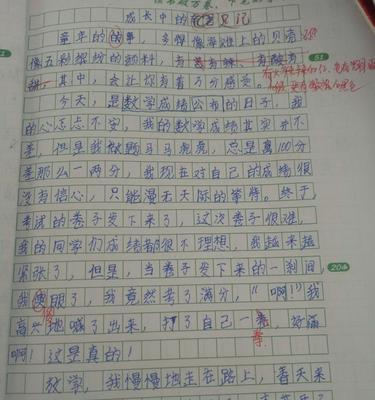 成长中的
童年的故事,多得像海滩上的贝壳
像五彩缤纷的颜料,有
甜,其中,会让你有着万分感受。
今天,是数学成绩公布的日子,我
的心忐忑不安,我的数学成绩其实并不
差,但是我做题马马虎虎,总是离100分
差那么一两分,我现在对自己的成绩很
没有信心,只能漫无天际的等待。终于,
考试的卷子发下来了,这次卷子很难,
我的同学们成绩都很不理想,我越来越
紧张了,但是,当卷子发下来的一刹间
我 眼了,我竟然考了满分,“啊!”我
高兴地喊了出来,打了自己一 ,好痛
啊!这是真的!
放学,我慢慢地走在路上,春天来
51
204